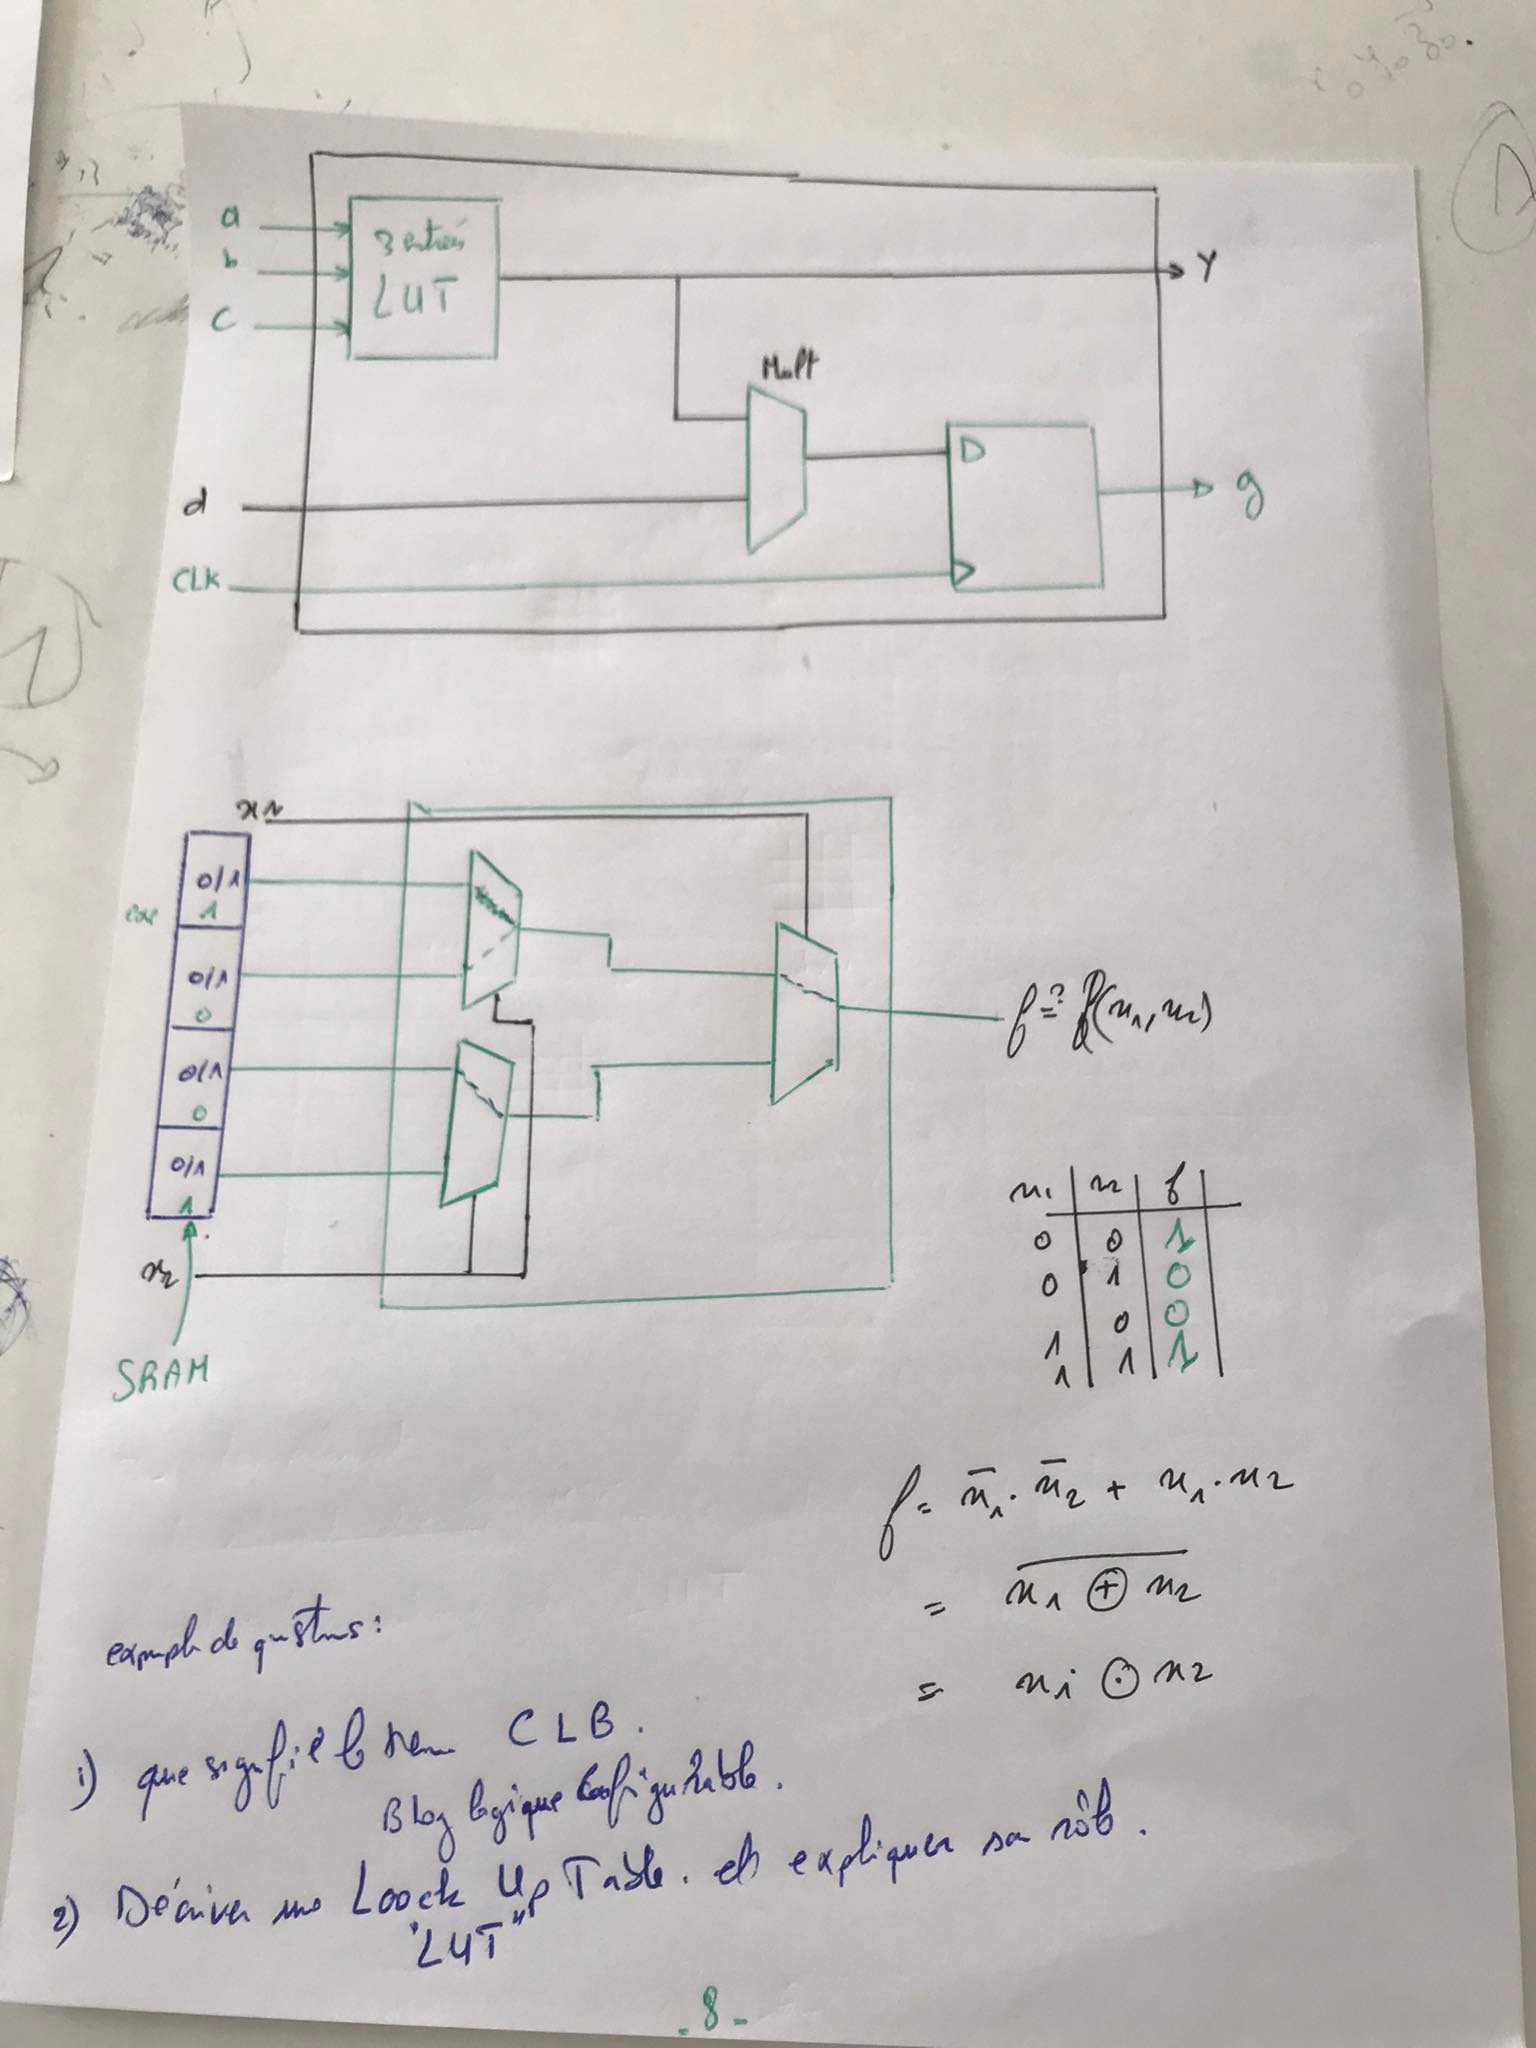 a
b
c
3 entrées
LUT
Y
Mult
d
D
g
CLK
x1
0/1
1
exe
0/1
0
0/1
0
0/1
1
f =? f(x1, x2)
x2
SRAM
x1 x2 f
0 0 1
0 1 0
1 0 0
1 1 1
f = x̄1 · x̄2 + x1 · x2
= \overline{x1 ⊕ x2}
= x1 ⊙ x2
exemple de questions :
1) que signifie le terme CLB.
Bloq logique Configurable.
2) Décriver une Loock Up Table. et expliquer son rôle.
"LUT"
- 8 -